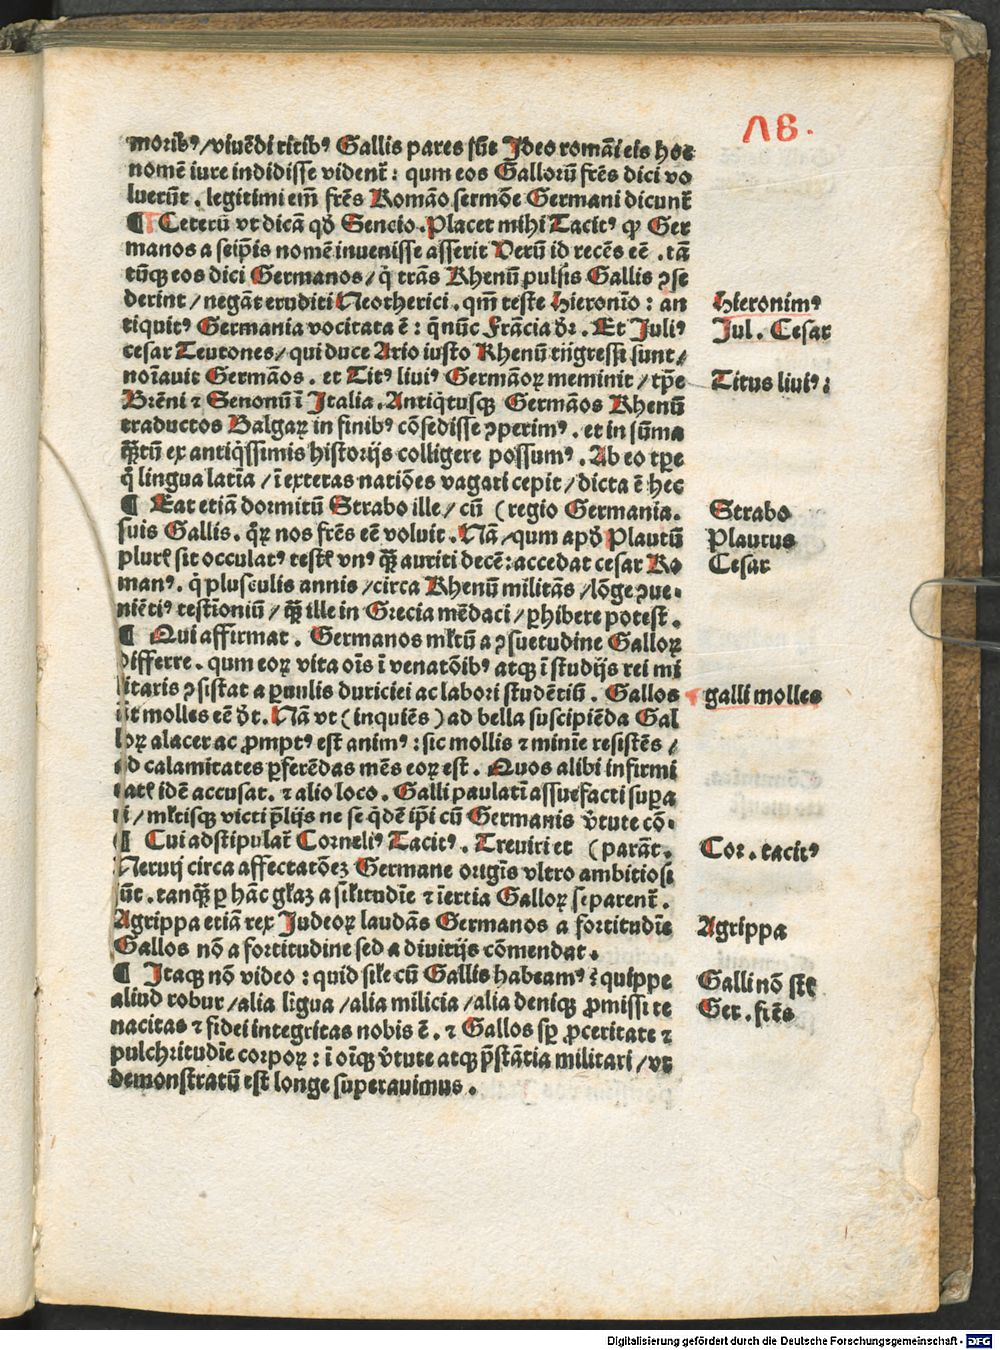 ΛB.
moribꝰ/viuēdi ritibꝰ Gallis pares sūt Ideo romāi eis hoc
nomē iure indidisse vident᷑: qum eos Gallorū fr̄es dici vo
luerūt. legitimi em̄ fr̄es Romāo sermōe Germani dicunt᷑
¶ Ceterū vt dicā qd̕ Sencio. Placet mihi Tacitꝰ ꝙ Ger
manos a seip̄is nomē inuenisse asserit Verū id recēs eē. tā
tūqꝫ eos dici Germanos/q̄ trās Rhenū pulsis Gallis ꝯse
derint/negāt eruditi Neotherici. qm̄ teste Hieronīo: an
tiquitꝰ Germania vocitata ē: q̄ nūc Frācia dr̄. Et Juliꝰ
cesar Teutones/qui duce Ario iusto Rhenū trāgressi sunt/
noīauit Germāos. et Titꝰ liuiꝰ Germāoꝝ meminit/tp̄e
Brēni ⁊ Senonū ī Italia. Antiq̄tusqꝫ Germāos Rhenū
traductos Balgaꝝ in finibꝰ cōsedisse ꝯperimꝰ. et in sūma
quātū ex antiq̄ssimis historijs colligere possumꝰ. Ab eo tꝑe
q̄ lingua latīa/ī exteras natiōes vagari cepit/dicta ē hec
¶ Eat etiā dormitū Strabo ille/cū (regio Germania.
suis Gallis. q̄ꝝ nos fr̄es eē voluit. Nā/qum apd̕ Plautū
plurꝭ sit occulatꝰ testꝭ vnꝰ quā auriti decē: accedat cesar Ro
manꝰ. q̄ plusculis annis/circa Rhenū militās/lōge ꝯue-
niētiꝰ testīoniū/quā ille in Grecia mēdaci/ꝑhibere potest.
¶ Qui affirmat. Germanos ml̄tū a ꝯsuetudine Galloꝝ
differre. qum eoꝝ vita oīs ī venatōibꝰ atqꝫ ī studijs rei mi
litaris ꝯsistat a ꝑuulis duriciei ac labori studētiū. Gallos
āt molles eē dt̄. Nā vt (inquiēs) ad bella suscipiēda Gal
loꝝ alacer ac ꝓmptꝰ est animꝰ: sic mollis ⁊ minīe resistēs/
ad calamitates ꝑferēdas mēs eoꝝ est. Quos alibi infirmi
tatꝭ idē accusat. ⁊ alio loco. Galli paulatī assuefacti supera
ri/ml̄tisqꝫ victi p̄lijs ne se q̄dē ip̄i cū Germanis v̄tute cō-
¶ Cui adstipulat᷑ Corneliꝰ Tacitꝰ. Treuiri et (parāt.
Neruij circa affectatōeꝫ Germane origīs vltro ambitiosi
sūt. tanquā ꝑ hāc gl̄iaꝫ a sil̄itudīe ⁊ īertia Galloꝝ separent᷑.
Agrippa etiā rex Judeoꝝ laudās Germanos a fortitudīe
Gallos nō a fortitudine sed a diuitijs cōmendat.
¶ Itaqꝫ nō video: quid sil̄e cū Gallis habeamꝰ? quippe
aliud robur/alia ligua/alia milicia/alia deniqꝫ ꝓmissi te
nacitas ⁊ fidei integritas nobis ē. ⁊ Gallos sꝑ ꝓceritate ⁊
pulchritudīe corpoꝝ: ī oīqꝫ v̄tute atqꝫ p̄stātia militari/vt
demonstratū est longe superauimus.
Hieronimꝰ
Jul. Cesar
Titus liuiꝰ
Strabo
Plautus
Cesar
galli molles
Cor. tacitꝰ
Agrippa
Galli nō sūt
Ger. fr̄es
Digitalisierung gefördert durch die Deutsche Forschungsgemeinschaft - DFG